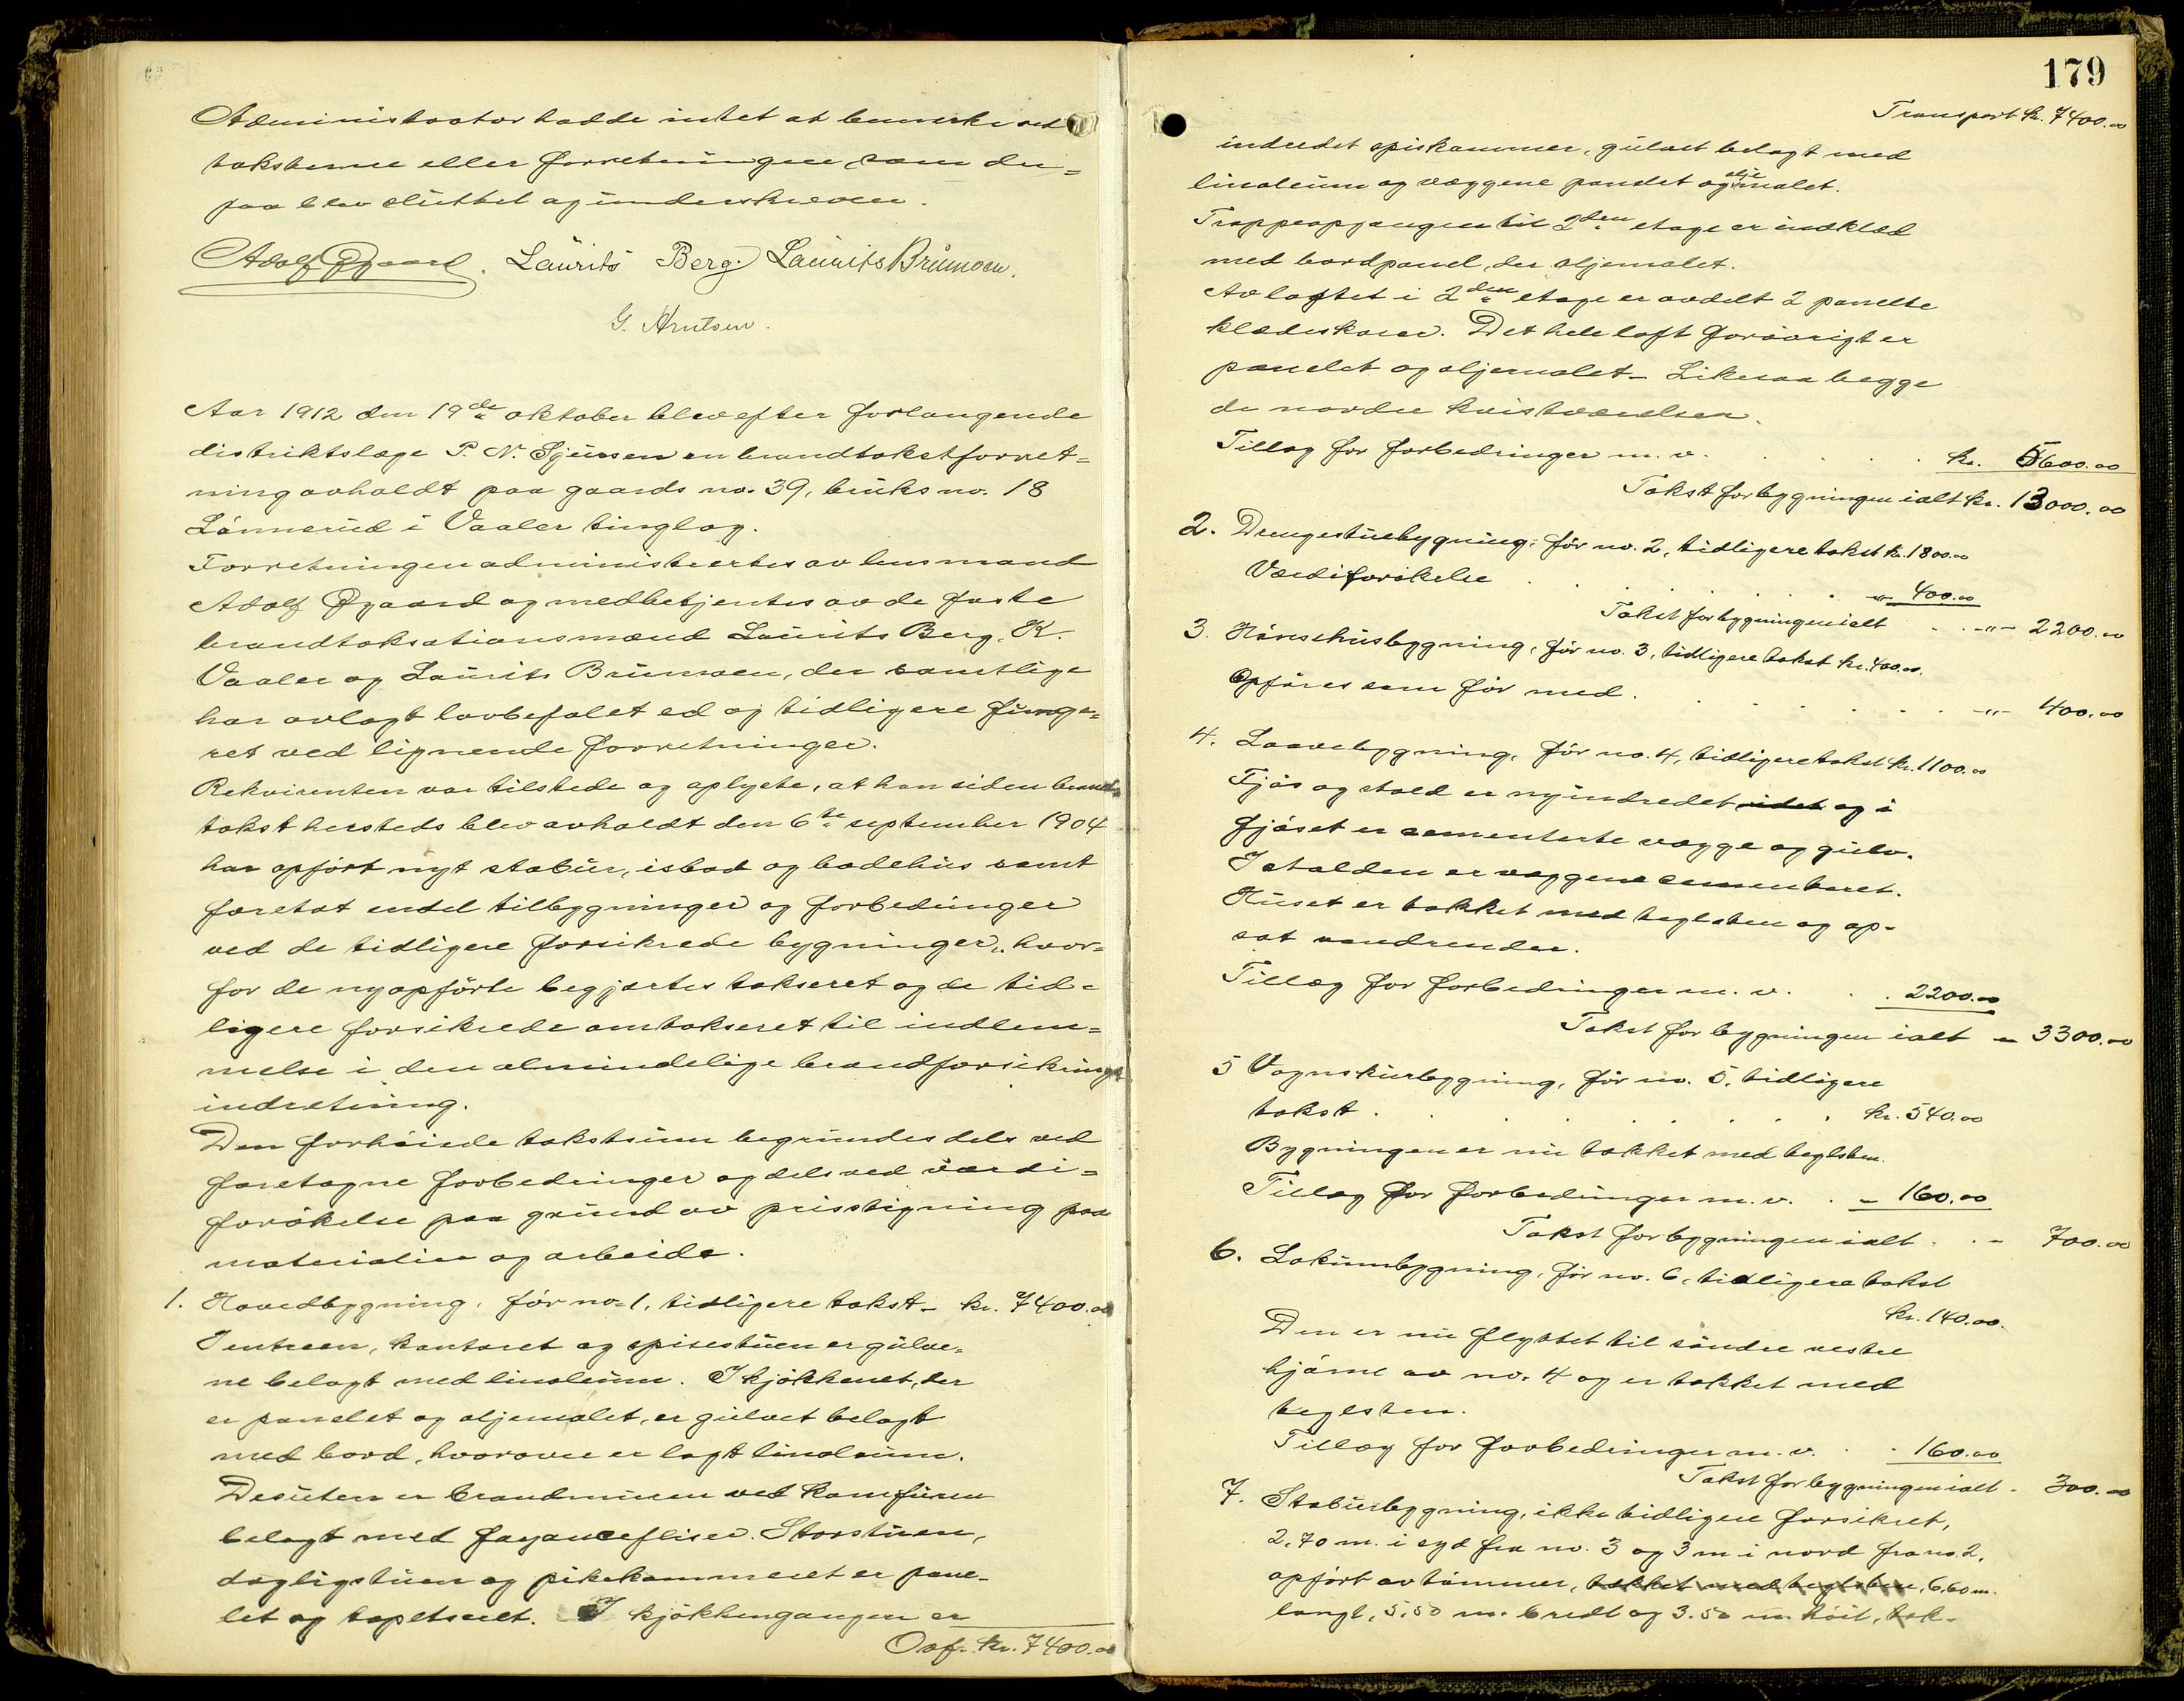 Administrator hadde intet at bemerke ved
taksterne eller forretningen, som der=
paa blev sluttet og underskreven.
Adolf Øgaard. Laurits Berg. Laurits Brunoen.
G. Arntsen.
Aar 1912 den 19de oktober blev efter forlangende
distriktslæge P. N. Sjuesen en brandtakstforret=
ning avholdt paa gaards no. 39, bruks no. 18
Lønnerud i Vaaler tinglag.
Forretningen administrertes av lensmand
Adolf Øgaard og medbetjentes av de faste
brandtaksationsmænd Laurits Berg, K.
Vaaler og Laurits Brunoen, der samtlige
har avlagt lovbefalet ed og tidligere funge=
ret ved lignende forretninger.
Rekvirenten var tilstede og oplyste, at han siden brand=
takst hersteds blev avholdt den 6te september 1904
har opført nyt stabur, isbod og badehus samt
foretat endel tilbygninger og forbedringer
ved de tidligere forsikrede bygninger, hvor=
for de nyopførte begjærtes takseret og de tid=
ligere forsikrede omtakseret til indlem=
melse i den almindelige brandforsikrings
indretning.
Den forhøiede takstsum begrundes dels ved
foretagne forbedringer og dels ved værdi=
forøkelse paa grund av prisstigning paa
materialier og arbeide.
1. Hovedbygning, før no. 1, tidligere takst - kr. 7400.00
I entreen, kontoret og spisestuen er gulve=
ne belagt med linoleum. I kjøkkenet, der
er panelet og oljemalet, er gulvet belagt
med bord, hvorover er lagt linoleum.
Desuten er brandmuren ved komfuren
belagt med fayancefliser. Storstuen,
dagligstuen og pikekammeret er pane-
let og tapetseret. I kjøkkengangen er
Ovf. kr. 7400.00
179
Transport kr. 7400.00
indredet spiskammer, gulvet belagt med
linoleum og væggene panelet og oljemalet.
Trappeopgangen til 2den etage er indklæd
med bordpanel, der oljemalet.
Av loftet i 2den etage er avdelt 2 panelte
klædeskaar. Det hele loft forøvrigt er
panelet og oljemalet - Likesaa begge
de nordre kvistværelser.
Tillæg for forbedringer m. v. . . . . kr. 5600.00
Takst for bygningen ialt kr. 13000.00
2. Drengestuebygning, før no. 2, tidligere takst kr. 1800.00
Værdiforøkelse . . . . . -"- 400.00
Takst for bygningen ialt . . -"- 2200.00
3. Hønsehusbygning, før no. 3, tidligere takst kr. 400.00.
Opføres som før med . . . . . . . -"- 400.00
4. Laavebygning, før no. 4, tidligere takst kr. 1100.00
Fjøs og stald er nyindredet idet og i
fjøset er cementerte vægge og gulv.
I stalden er væggene cementeret.
Huset er tækket med teglsten og op-
sat vandrender.
Tillæg for forbedringer m. v. . . 2200.00
Takst for bygningen ialt - 3300.00
5 Vognskurbygning, før no. 5, tidligere
takst . . . . . . . . kr. 540.00
Bygningen er nu tækket med teglsten.
Tillæg for forbedringer m. v. . - 160.00
Takst for bygningen ialt . . - 700.00
6. Lokumbygning, før no. 6, tidligere takst
kr. 140.00.
Den er nu flyttet til søndre vestre
hjørne av no. 4 og er tækket med
teglsten.
Tillæg for forbedringer m. v. . . 160.00
Takst for bygningen ialt - 300.00
7. Staburbygning, ikke tidligere forsikret,
2.70 m. i syd fra no. 3 og 3 m i nord fra no. 2,
opført av tømmer, tækket med teglsten, 6.60 m.
langt, 5.50 m. bredt og 3.50 m. høit, tæk-